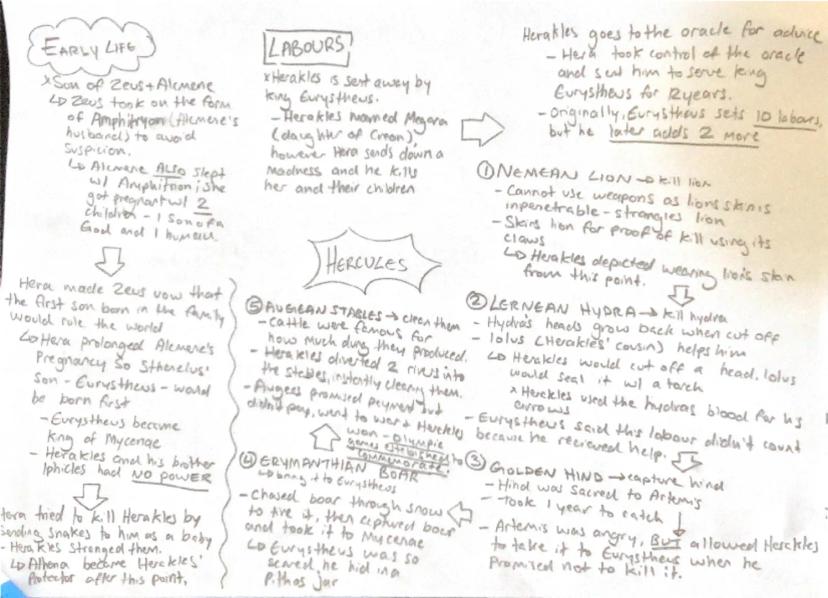 EARLY LIFE
x Son of Zeus + Alcmene
↳ Zeus took on the form
of Amphitryon (Alcmene's
husband) to avoid
suspicion.
↳ Alcmene ALSO slept
w/ Amphitrion; she
got pregnant w/ 2
children - 1 son of a
God and 1 human
Hera made Zeus vow that
the first son born in the family
would rule the world
↳ Hera prolonged Alcmene's
Pregnancy so Sthenelus'
son - Eurystheus - would
be born first
- Eurystheus became
king of Mycenae
- Herakles and his brother
Iphicles had NO POWER
Hera tried to kill Herakles by
sending snakes to him as a baby
- Herakles strangled them.
↳ Athena became Herakles'
Protector after this point.
LABOURS
x Herakles is sent away by
king Eurystheus.
- Herakles married Megara
(daughter of Creon),
however Hera sends down a
madness and he kills
her and their children
Herakles goes to the oracle for advice
- Hera took control of the oracle
and sent him to serve king
Eurystheus for 12 years.
- Originally, Eurystheus sets 10 labours,
but he later adds 2 more
HERCULES
① NEMEAN LION → kill lion
- Cannot use weapons as lions skin is
inpenetrable - strangles lion
- Skins lion for proof of kill using its
claws
↳ Herakles depicted wearing lion's skin
from this point.
② LERNEAN HYDRA → kill hydra
- Hydra's heads grow back when cut off
- Iolus (Herakles' cousin) helps him
↳ Herakles would cut off a head, Iolus
would seal it w/ a torch
x Herkles used the hydras blood for his
arrows
- Eurystheus said this labour didn't count
because he recieved help.
③ GOLDEN HIND → capture hind
- Hind was sacred to Artemis
- Took 1 year to catch
- Artemis was angry, BUT allowed Herakles
to take it to Eurystheus when he
Promised not to kill it.
④ ERYMANTHIAN BOAR
↳ bring it to Eurystheus
- Chased boar through snow
to tire it, then captured boar
and took it to Mycenae
↳ Eurystheus was so
scared, he hid in a
Pithos jar
⑤ AUGEAN STABLES → clean them
- Cattle were famous for
how much dung they produced.
- Herakles diverted 2 rivers into
the stables, instantly cleaning them.
- Augees promised payment but
didn't pay, went to war + Herakles
won - Olympic
games established to
commemorate.